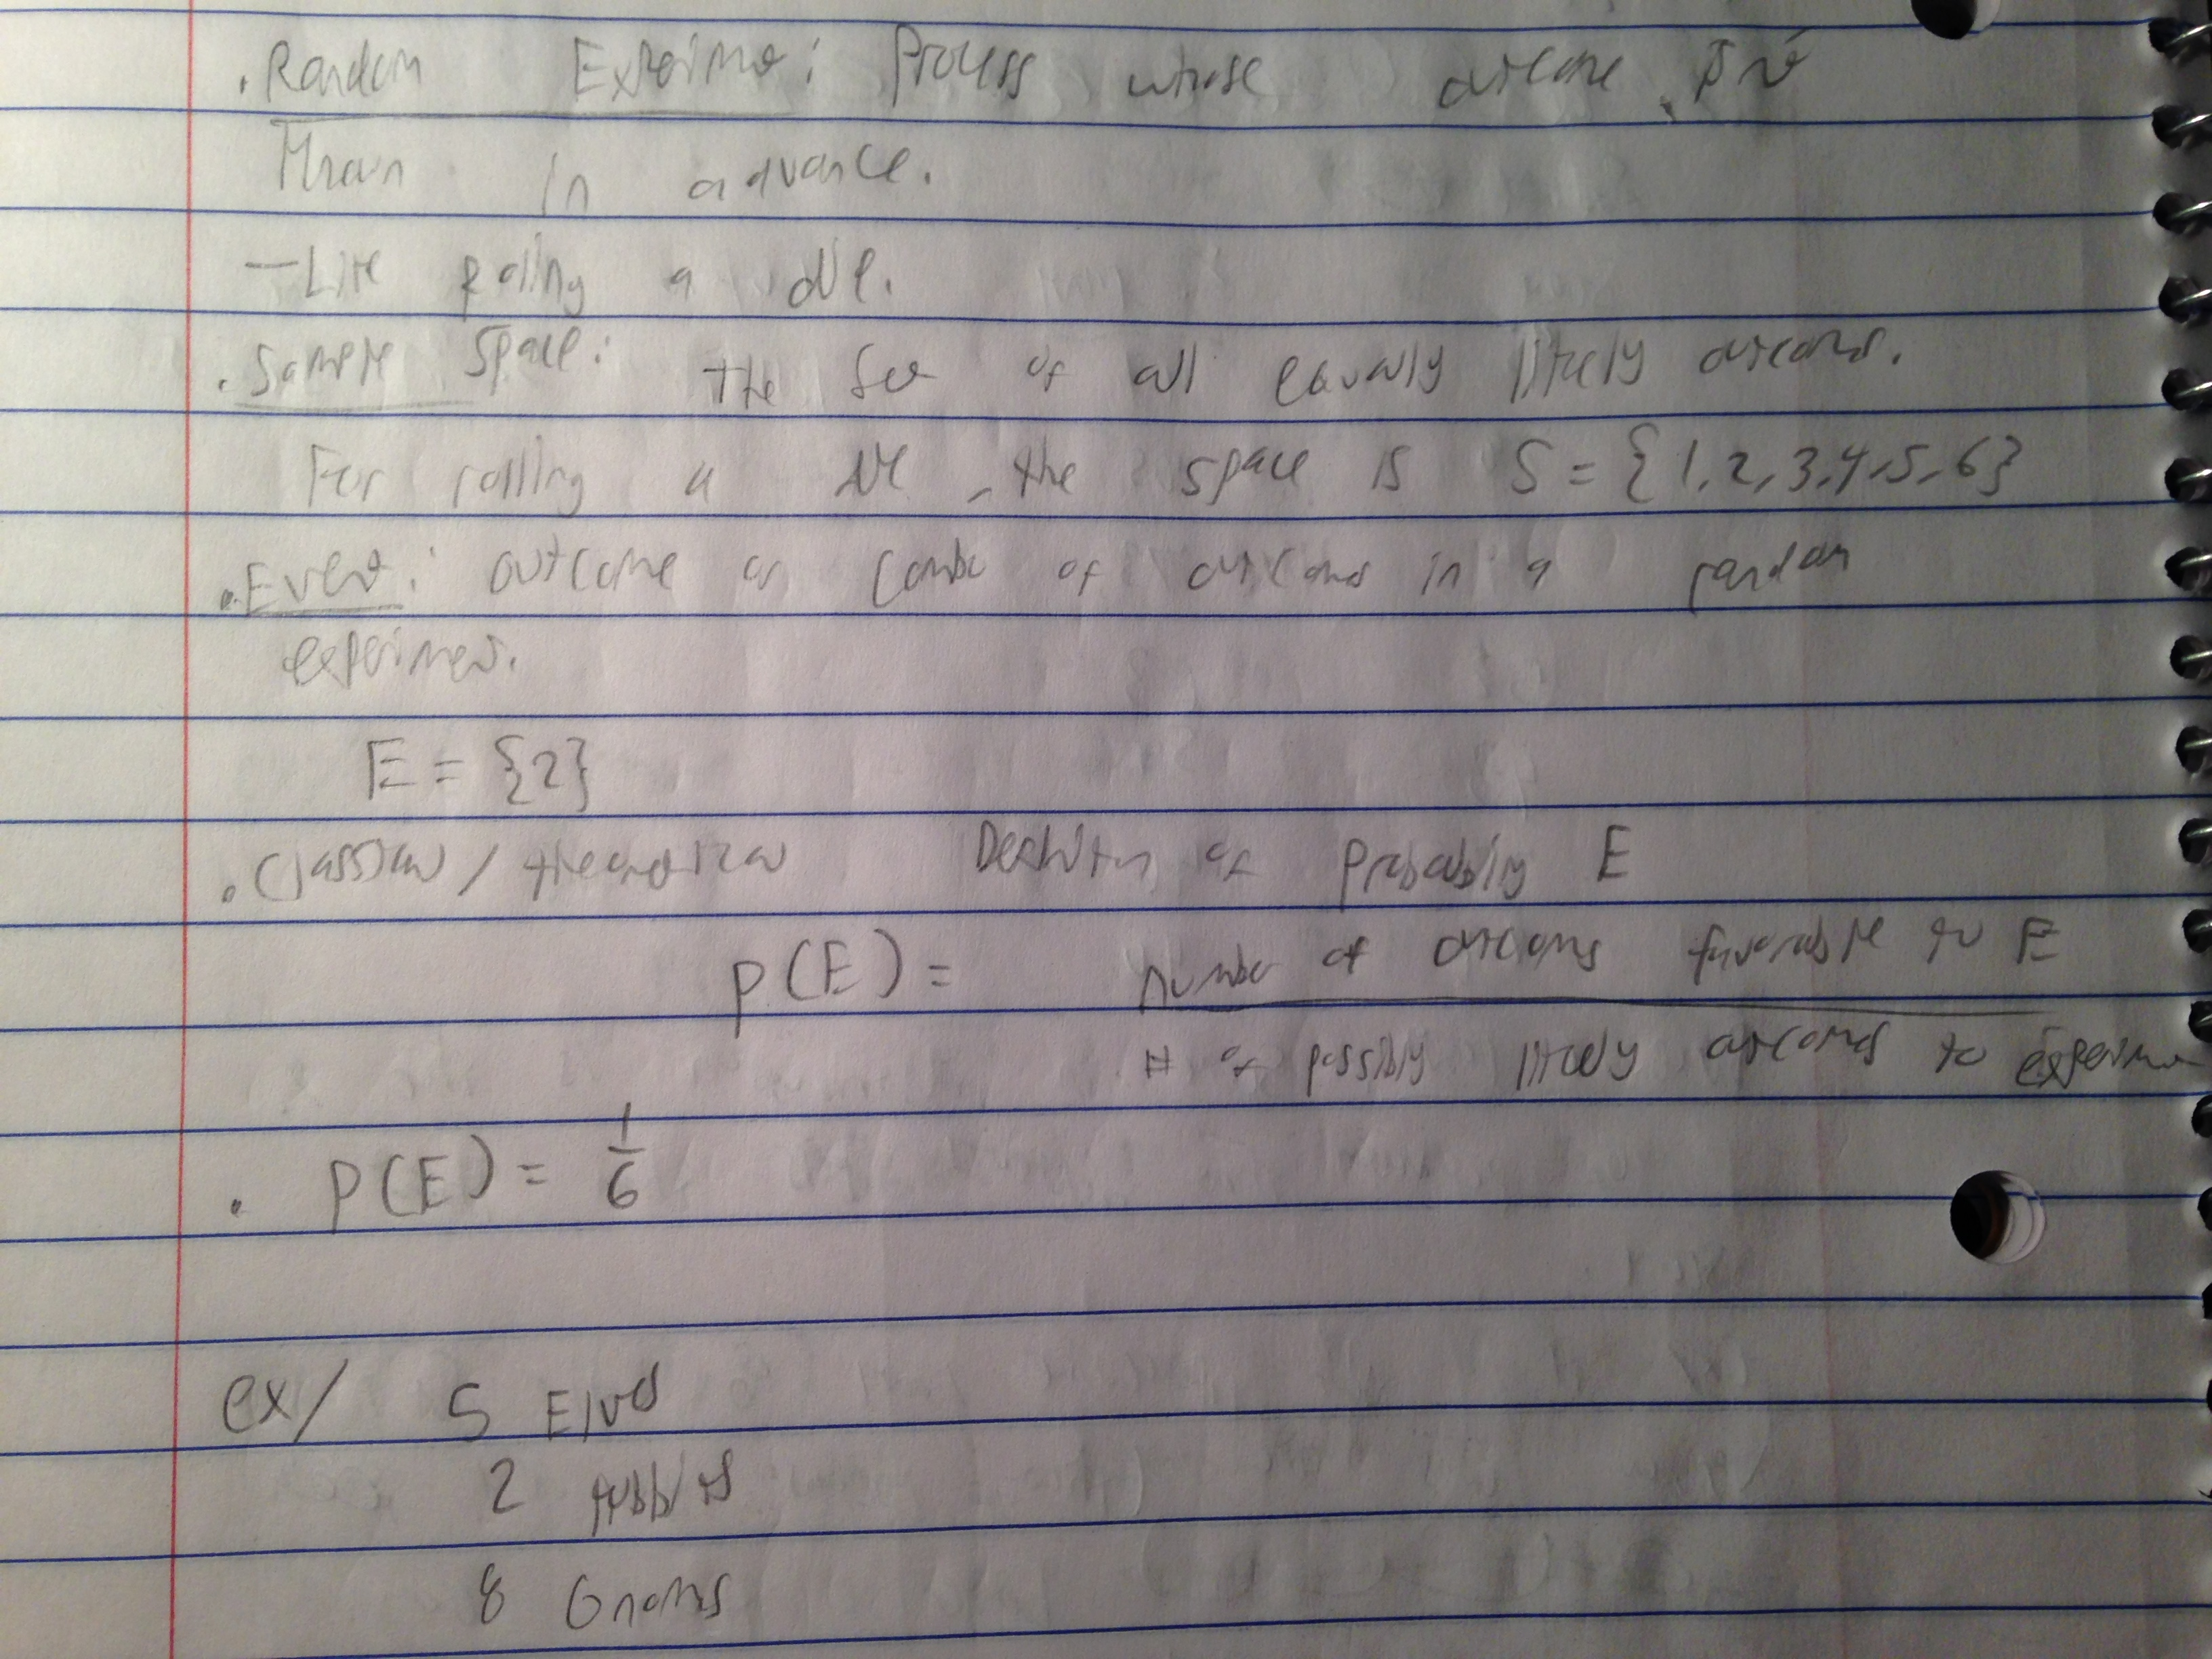 . Random Experiment: Process whose outcome is not
known in advance.
— Like rolling a die.
. Sample Space: the set of all equally likely outcomes.
For rolling a die, the space is S = {1,2,3,4,5,6}
. Event: outcome or combo of outcomes in a random
experiment.
E = {2}
. Classical / theoretical Definition of probability E
P(E) = number of outcomes favorable to E
# of possibly likely outcomes to experiment
. P(E) = 1/6
ex/ 5 Elves
2 Hobbits
8 Gnomes